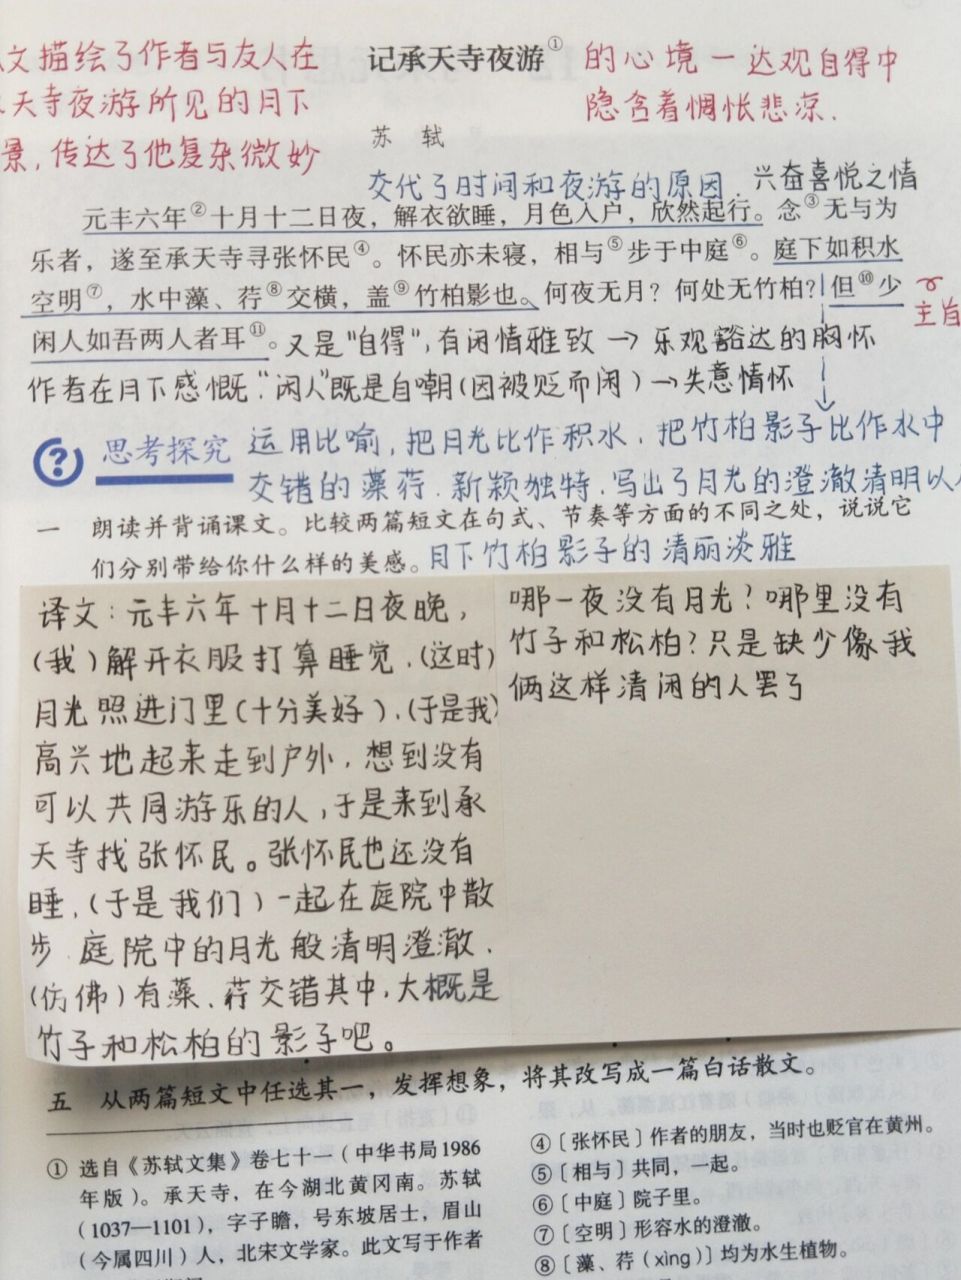 文描绘了作者与友人在
天寺夜游所见的月下
景,传达了他复杂微妙
记承天寺夜游①
的心境一达观自得中
隐含着惆怅悲凉.
苏 轼
交代了时间和夜游的原因. 兴奋喜悦之情
元丰六年②十月十二日夜，解衣欲睡，月色入户，欣然起行。念③无与为
乐者，遂至承天寺寻张怀民④。怀民亦未寝，相与⑤步于中庭⑥。庭下如积水
空明⑦，水中藻、荇⑧交横，盖⑨竹柏影也。何夜无月？何处无竹柏？但⑩少
主旨
闲人如吾两人者耳⑪。又是"自得",有闲情雅致→乐观豁达的胸怀
作者在月下感慨:"闲人"既是自嘲(因被贬而闲)→失意情怀
? 思考探究 运用比喻,把月光比作积水.把竹柏影子比作水中
交错的藻荇.新颖独特.写出了月光的澄澈清明以
一 朗读并背诵课文。比较两篇短文在句式、节奏等方面的不同之处，说说它
们分别带给你什么样的美感。月下竹柏影子的清丽淡雅
译文:元丰六年十月十二日夜晚,
(我)解开衣服打算睡觉.(这时)
月光照进门里(十分美好).(于是我)
高兴地起来走到户外.想到没有
可以共同游乐的人,于是来到承
天寺找张怀民。张怀民也还没有
睡.(于是我们)一起在庭院中散
步.庭院中的月光般清明澄澈.
(仿佛)有藻、荇交错其中,大概是
竹子和松柏的影子吧。
哪一夜没有月光?哪里没有
竹子和松柏?只是缺少像我
俩这样清闲的人罢了
五 从两篇短文中任选其一，发挥想象，将其改写成一篇白话散文。
① 选自《苏轼文集》卷七十一（中华书局1986
年版）。承天寺，在今湖北黄冈南。苏轼
（1037—1101），字子瞻，号东坡居士，眉山
（今属四川）人，北宋文学家。此文写于作者
④〔张怀民〕作者的朋友，当时也贬官在黄州。
⑤〔相与〕共同，一起。
⑥〔中庭〕院子里。
⑦〔空明〕形容水的澄澈。
⑧〔藻、荇（xìng）〕均为水生植物。